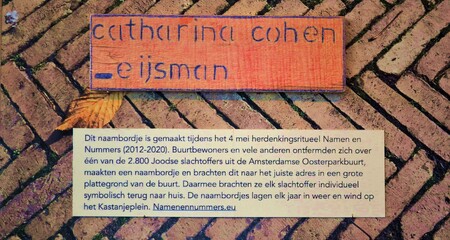 catharina cohen
_eijsman
Dit naambordje is gemaakt tijdens het 4 mei herdenkingsritueel Namen en
Nummers (2012-2020). Buurtbewoners en vele anderen ontfermden zich over
één van de 2.800 Joodse slachtoffers uit de Amsterdamse Oosterparkbuurt,
maakten een naambordje en brachten dit naar het juiste adres in een grote
plattegrond van de buurt. Daarmee brachten ze elk slachtoffer individueel
symbolisch terug naar huis. De naambordjes lagen elk jaar in weer en wind op
het Kastanjeplein. Namenennummers.eu